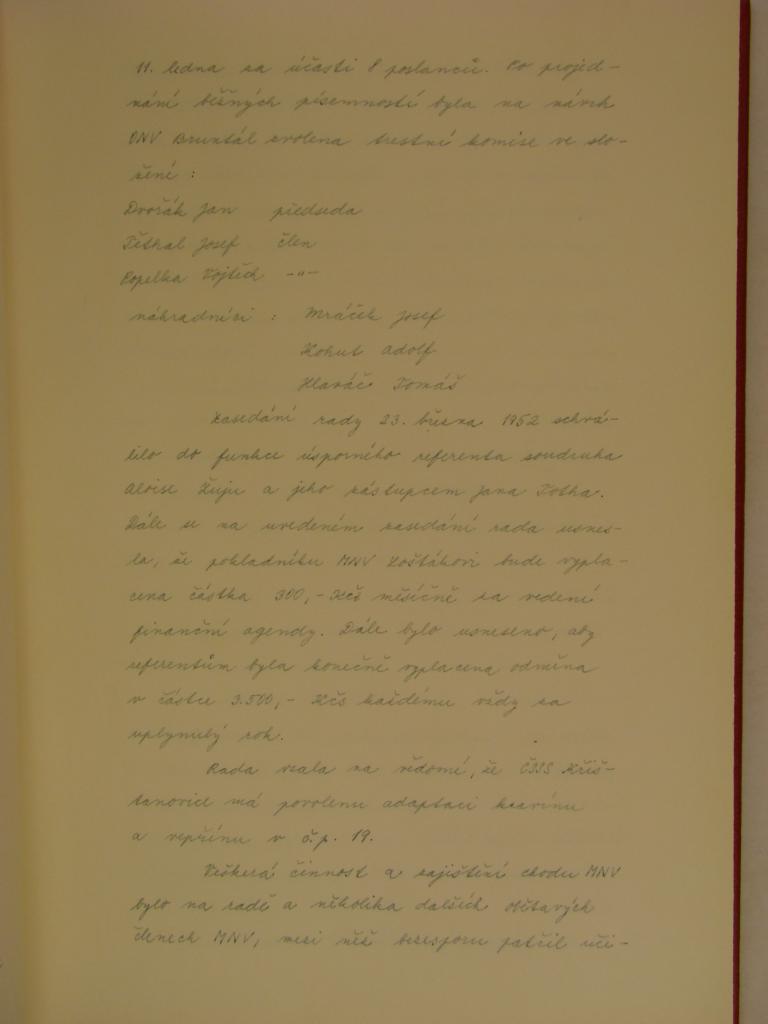 11. ledna za účasti 8 poslanců. Po projed-
nání běžných písemností byla na návrh
ONV Bruntál zvolena trestní komise ve slo-
žení :
Dvořák Jan předseda
Těthal Josef člen
Popelka Vojtěch -"-
náhradníci : Mráček Josef
Kohut Adolf
Hlaváč Tomáš
Zasedání rady 23. března 1952 schvá-
lilo do funkce úsporného referenta soudruha
Aloise Žuju a jeho zástupcem Jana Totha.
Dále se na uvedeném zasedání rada usnes-
la, že pokladníku MNV Košťákovi bude vypla-
cena částka 300,- Kčs měsíčně za vedení
finanční agendy. Dále bylo usneseno, aby
referentům byla konečně vyplacena odměna
v částce 3.500,- Kčs každému vždy za
uplynulý rok.
Rada vzala na vědomí, že ČSSS Křiš-
tanovice má povolenu adaptaci kravínu
a vepřínu v č.p. 19.
Veškerá činnost a zajištění chodu MNV
bylo na radě a několika dalších obětavých
členech MNV, mezi něž bezesporu patřil uči-